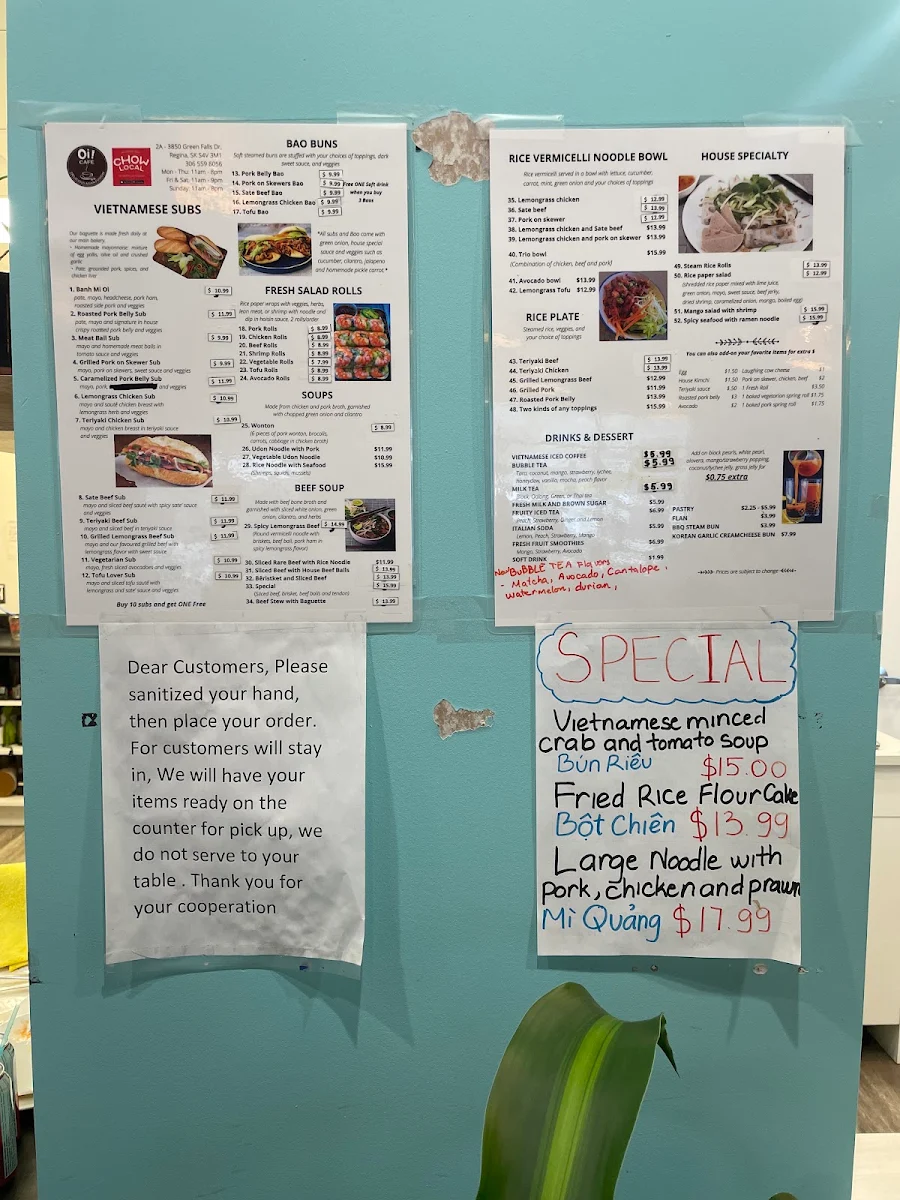 Oi!
CAFE
CHOW
LOCAL
2A - 3850 Green Falls Dr,
Regina, SK S4V 3M1
306 559 6056
Mon - Thu: 11am - 8pm
Fri & Sat, 11am - 9pm
Sunday: 11am - 8pm
VIETNAMESE SUBS
Our baguette is made fresh daily at
our main bakery.
- Homemade mayonnaise: mixture
of egg yolks, olive oil and crushed
garlic
- Pate: grounded pork, spices, and
chicken liver
1. Banh Mi Oi $ 10.99
pate, mayo, headcheese, pork ham,
roasted side pork and veggies
2. Roasted Pork Belly Sub $ 11.99
pate, mayo and signature in house
crispy roasted pork belly and veggies
3. Meat Ball Sub $ 9.99
mayo and homemade meat balls in
tomato sauce and veggies
4. Grilled Pork on Skewer Sub $ 9.99
mayo, pork on skewers, sweet sauce and veggies
5. Caramelized Pork Belly Sub $ 11.99
mayo, pork, and veggies
6. Lemongrass Chicken Sub $ 10.99
mayo and sauté chicken breast with
lemongrass herb and veggies
7. Teriyaki Chicken Sub $ 10.99
mayo and chicken breast in teriyaki sauce
and veggies
8. Sate Beef Sub $ 11.99
mayo and sliced beef sauté with spicy sate' sauce
and veggies
9. Teriyaki Beef Sub $ 11.99
mayo and sliced beef in teriyaki sauce
10. Grilled Lemongrass Beef Sub $ 11.99
mayo and our favoured grilled beef with
lemongrass flavor with sweet sauce
11. Vegetarian Sub $ 10.99
mayo, fresh sliced avocadoes and veggies
12. Tofu Lover Sub $ 10.99
mayo and sliced tofu sauté with
lemongrass and sate' sauce and veggies
Buy 10 subs and get ONE Free
BAO BUNS
Soft steamed buns are stuffed with your choices of toppings, dark
sweet sauce, and veggies
13. Pork Belly Bao $ 9.99
14. Pork on Skewers Bao $ 9.99
15. Sate Beef Bao $ 9.99
16. Lemongrass Chicken Bao $ 9.99
17. Tofu Bao $ 9.99
Free ONE Soft drink
when you buy
3 Baos
*All subs and Bao come with
green onion, house special
sauce and veggies such as
cucumber, cilantro, jalapeno
and homemade pickle carrot.*
FRESH SALAD ROLLS
Rice paper wraps with veggies, herbs,
lean meat, or shrimp with noodle and
dip in hoisin sauce. 2 rolls/order
18. Pork Rolls $ 8.99
19. Chicken Rolls $ 8.99
20. Beef Rolls $ 8.99
21. Shrimp Rolls $ 8.99
22. Vegetable Rolls $ 7.99
23. Tofu Rolls $ 8.99
24. Avocado Rolls $ 8.99
SOUPS
Made from chicken and pork broth, garnished
with chopped green onion and cilantro
25. Wonton $ 8.99
(6 pieces of pork wonton, brocolis,
carrots, cabbage in chicken broth)
26. Udon Noodle with Pork $11.99
27. Vegetable Udon Noodle $10.99
28. Rice Noodle with Seafood $15.99
(Shrimps, squids, mussels)
BEEF SOUP
Made with beef bone broth and
garnished with sliced white onion, green
onion, cilantro, and herbs
29. Spicy Lemongrass Beef $ 14.99
(Round vermicelli noodle with
briskets, beef ball, pork ham in
spicy lemongrass flavor)
30. Sliced Rare Beef with Rice Noodle $11.99
31. Sliced Beef with House Beef Balls $ 13.99
32. Bêristket and Sliced Beef $ 13.99
33. Special $ 15.99
(Sliced beef, brisket, beef balls and tendon)
34. Beef Stew with Baguette $ 13.99
RICE VERMICELLI NOODLE BOWL
Rice vermicelli served in a bowl with lettuce, cucumber,
carrot, mint, green onion and your choices of toppings
35. Lemongrass chicken $ 12.99
36. Sate beef $ 13.99
37. Pork on skewer $ 12.99
38. Lemongrass chicken and Sate beef $13.99
39. Lemongrass chicken and pork on skewer $13.99
40. Trio bowl $15.99
(Combination of chicken, beef and pork)
41. Avocado bowl $13.99
42. Lemongrass Tofu $12.99
RICE PLATE
Steamed rice, veggies, and
your choice of toppings
43. Teriyaki Beef $ 13.99
44. Teriyaki Chicken $ 13.99
45. Grilled Lemongrass Beef $12.99
46. Grilled Pork $11.99
47. Roasted Pork Belly $13.99
48. Two kinds of any toppings $15.99
HOUSE SPECIALTY
49. Steam Rice Rolls $ 13.99
50. Rice paper salad $ 12.99
(shredded rice paper mixed with lime juice,
green onion, mayo, sweet sauce, beef jerky,
dried shrimp, caramelized onion, mango, boiled egg)
51. Mango salad with shrimp $ 15.99
52. Spicy seafood with ramen noodle $ 15.99
You can also add-on your favorite items for extra $
Egg $1.50 Laughing cow cheese $1
House Kimchi $1.50 Pork on skewer, chicken, beef $2
Teriyaki sauce $.50 1 Fresh Roll $3.50
Roasted pork belly $3 1 baked vegetarian spring roll $1.75
Avocado $2 1 baked pork spring roll $1.75
DRINKS & DESSERT
VIETNAMESE ICED COFFEE $5.99
BUBBLE TEA $5.99
Taro, coconut, mango, strawberry, lychee,
honeydew, vanilla, mocha, peach flavor
MILK TEA $5.99
Black, Oolong, Green, or Thai tea
FRESH MILK AND BROWN SUGAR $5.99
FRUITY ICED TEA $6.99
Peach, Strawberry, Ginger and Lemon
ITALIAN SODA $5.99
Lemon, Peach, Strawberry, Mango
FRESH FRUIT SMOOTHIES $6.99
Mango, Strawberry, Avocado
SOFT DRINK $1.99
Add on black pearls, white pearl,
alovera, mango/strawberry popping,
coconut/lychee jelly, grass jelly for
$0.75 extra
PASTRY $2.25 - $5.99
FLAN $3.99
BBQ STEAM BUN $3.99
KOREAN GARLIC CREAMCHEESE BUN $7.99
Prices are subject to change
New BUBBLE TEA Flavors
- Matcha, Avocado, Cantalope,
watermelon, durian,
Dear Customers, Please
sanitized your hand,
then place your order.
For customers will stay
in, We will have your
items ready on the
counter for pick up, we
do not serve to your
table . Thank you for
your cooperation
SPECIAL
Vietnamese minced
crab and tomato soup
Bún Riêu $15.00
Fried Rice Flour Cake
Bột Chiên $13.99
Large Noodle with
pork, chicken and prawn
Mì Quảng $17.99